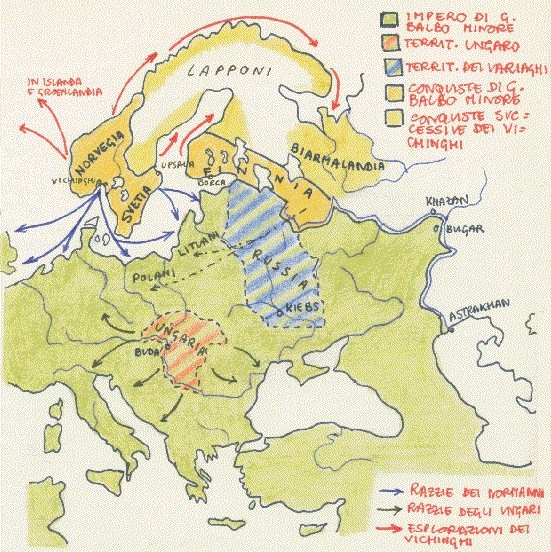 IMPERO DI G.
BALBO MINORE
TERRIT. UNGARO
TERRIT. DEI VARIAGHI
CONQUISTE DI G.
BALBO MINORE
CONQUISTE SUC=
CESSIVE DEI VI=
CHINGHI
IN ISLANDA
E GROENLANDIA
LAPPONI
NORVEGIA
VICHINGHI
UPSALA
SVETIA
FINNIA
BORCA
BIARMALANDIA
KHAZAN
BUGAR
LITUANI
POLANI
RUSSIA
KIEBS
ASTRAKHAN
UNGARIA
BUDA
RAZZIE DEI NORMANNI
RAZZIE DEGLI UNGARI
ESPLORAZIONI DEI
VICHINGHI